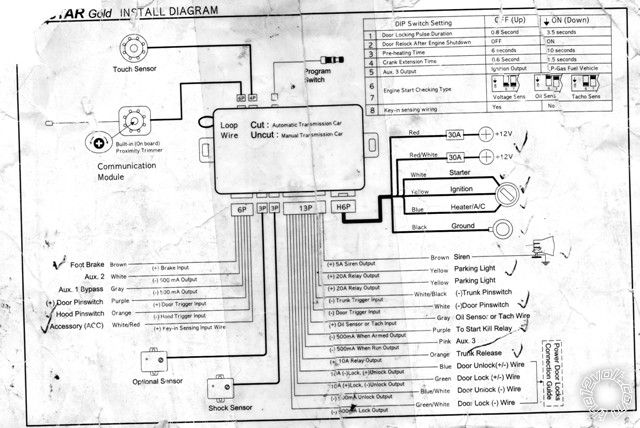 STAR Gold INSTALL DIAGRAM
DIP Switch Setting OFF (Up) ON (Down)
1 Door Locking Pulse Duration 0.8 Second 3.5 seconds
2 Door Relock After Engine Shutdown OFF ON
3 Pre-heating Time 6 seconds 10 seconds
4 Crank Extension Time 0.6 Second 1.5 seconds
5 Aux. 3 Output Ignition Output LP-Gas Fuel Vehicle
6
7 Engine Start Checking Type Voltage Sens Oil Sens Tacho Sens
8 Key-in sensing wiring Yes No
Touch Sensor
Program
Switch
6P 6P
Built-in (On board)
Proximity Trimmer
Communication
Module
Loop Cut : Automatic Transmission Car
Wire Uncut : Manual Transmission Car
6P 3P 3P 13P H6P
Red 30A +12V
Red/White 30A +12V
White Starter
Yellow Ignition
Blue Heater/A/C
Black Ground
Foot Brake Brown (+) Brake Input
Aux. 2 White (-) 500 mA Output
Aux. 1 Bypass Gray (-) 100 mA Output
(+) Door Pinswitch Purple (+) Door Trigger Input
(-) Hood Pinswitch Orange (-) Hood Trigger Input
Accessory (ACC) White/Red (+) Key-in Sensing Input Wire
Optional Sensor
Shock Sensor
(+) 5A Siren Output Brown Siren
(+) 20A Relay Output Yellow Parking Light
(+) 20A Relay Output Yellow Parking Light
(-) Trunk Trigger Input White/Black (-)Trunk Pinswitch
(-) Door Trigger Input White (-)Door Pinswitch
(+) Oil Sensor or Tach Input Gray Oil Sensor or Tach Wire
(-) 500mA When Armed Output Purple To Start Kill Relay
(-) 500mA When Run Output Pink Aux. 3
(+) 10A Relay Output Orange Trunk Release
10A (-)Lock, (+)Unlock Output Blue Door Unlock(+/-) Wire
10A (+)Lock, (-)Unlock Output Green Door Lock (+/-) Wire
Unlock Output Blue/White Door Unlock (-) Wire
Lock Output Green/White Door Lock (-) Wire
Power Door Locks
Connection Guide